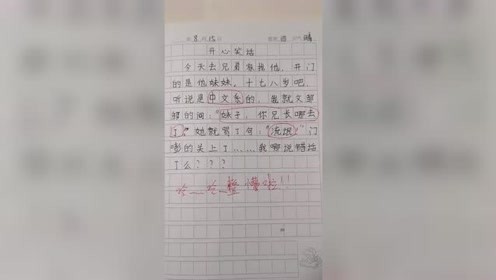 开心笑话
今天去兄弟家找他，开门
的是他妹妹，十七八岁吧，
听说是中文系的，我就文邹
邹的问："妹子，你兄长哪去
了"她就骂了句："流氓"门
嘭的关上了……我哪说错话
了么？？？